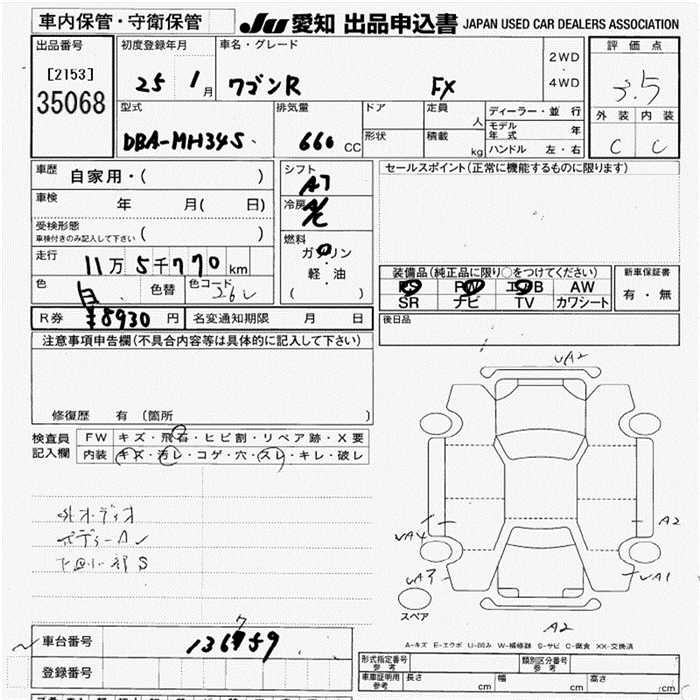 車内保管・守衛保管
JU 愛知 出品申込書 JAPAN USED CAR DEALERS ASSOCIATION
出品番号 [2153] 35068
初度登録年月 25 1月
車名・グレード ワゴンR FX
2WD・4WD
評価点 3.5
外装 内装
C C
型式 DBA-MH34S
排気量 660 CC
ドア 形状
定員 人
積載 kg
ディーラー・並行
モデル年式 年
ハンドル 左・右
車歴 自家用・( )
車検 年 月( 日)
受検形態 車検付きのみ記入して下さい ( )
走行 11万5千770km
色 白 色替 色コード 26U
シフト AT
冷房 A/C
燃料 ガソリン・軽油
( )
セールスポイント(正常に機能するものに限ります)
装備品(純正品に限り〇をつけてください)
PS PW エアB AW
SR ナビ TV カワシート
新車保証書
有・無
後日品
R券 ¥8930円 名変通知期限 月 日
注意事項申告欄(不具合内容等は具体的に記入して下さい)
修復歴 有 (箇所 )
検査員記入欄
FW キズ・飛石・ヒビ割・リペア跡・X要
内装 キズ・汚レ・コゲ・穴・スレ・キレ・破レ
外オーディオ
下回り一部S
UA2
A2
UA4
UA3
UA1
A2
スペア
A-キズ E-エクボ U-凹み W-補修跡 S-サビ C-腐食 XX-交換済
車台番号 136759
7
登録番号
形式指定番号 参考
類別区分番号 参考
車庫証明用 参考 長さ cm 幅 cm 高さ cm